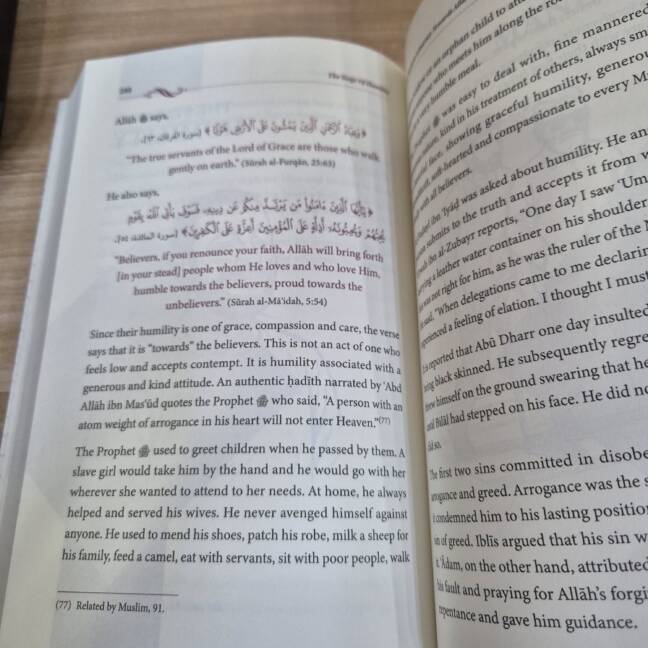 The Stage of Humility
Allāh ﷻ says,
﴿وَعِبَادُ ٱلرَّحْمَٰنِ ٱلَّذِينَ يَمْشُونَ عَلَى ٱلْأَرْضِ هَوْنًا﴾ (سورة الفرقان، ٦٣).
"The true servants of the Lord of Grace are those who walk
gently on earth." (Sūrah al-Furqān, 25:63)
He also says,
﴿يَٰٓأَيُّهَا ٱلَّذِينَ ءَامَنُوا۟ مَن يَرْتَدَّ مِنكُمْ عَن دِينِهِۦ فَسَوْفَ يَأْتِى ٱللَّهُ بِقَوْمٍ
يُحِبُّهُمْ وَيُحِبُّونَهُۥٓ أَذِلَّةٍ عَلَى ٱلْمُؤْمِنِينَ أَعِزَّةٍ عَلَى ٱلْكَٰفِرِينَ﴾ (سورة المائدة، ٥٤).
"Believers, if you renounce your faith, Allāh will bring forth
[in your stead] people whom He loves and who love Him,
humble towards the believers, proud towards the
unbelievers." (Sūrah al-Mā'idah, 5:54)
Since their humility is one of grace, compassion and care, the verse
says that it is "towards" the believers. This is not an act of one who
feels low and accepts contempt. It is humility associated with a
generous and kind attitude. An authentic ḥadīth narrated by 'Abd
Allāh ibn Mas'ūd quotes the Prophet ﷺ who said, "A person with an
atom weight of arrogance in his heart will not enter Heaven."(77)
The Prophet ﷺ used to greet children when he passed by them. A
slave girl would take him by the hand and he would go with her
wherever she wanted to attend to her needs. At home, he always
helped and served his wives. He never avenged himself against
anyone. He used to mend his shoes, patch his robe, milk a sheep for
his family, feed a camel, eat with servants, sit with poor people, walk
(77) Related by Muslim, 91.
orphan child to
who meets him along the
very humble meal.
ﷺ was easy to deal with, fine mannered
kind in his treatment of others, always
face, showing graceful humility,
hearted and compassionate to every
all believers.
ibn 'Iyāḍ was asked about humility. He
submits to the truth and accepts it from
ibn al-Zubayr reports, "One day I saw
a leather water container on his shoulder
was not right for him, as he was the ruler of the
said, "When delegations came to me
experienced a feeling of elation. I thought I must
is reported that Abū Dharr one day insulted
being black skinned. He subsequently
threw himself on the ground swearing that he
until Bilāl had stepped on his face. He did
did so.
The first two sins committed in
arrogance and greed. Arrogance was the
condemned him to his lasting
of greed. Iblīs argued that his sin
Ādam, on the other hand, attributed
his fault and praying for Allāh's
repentance and gave him guidance.